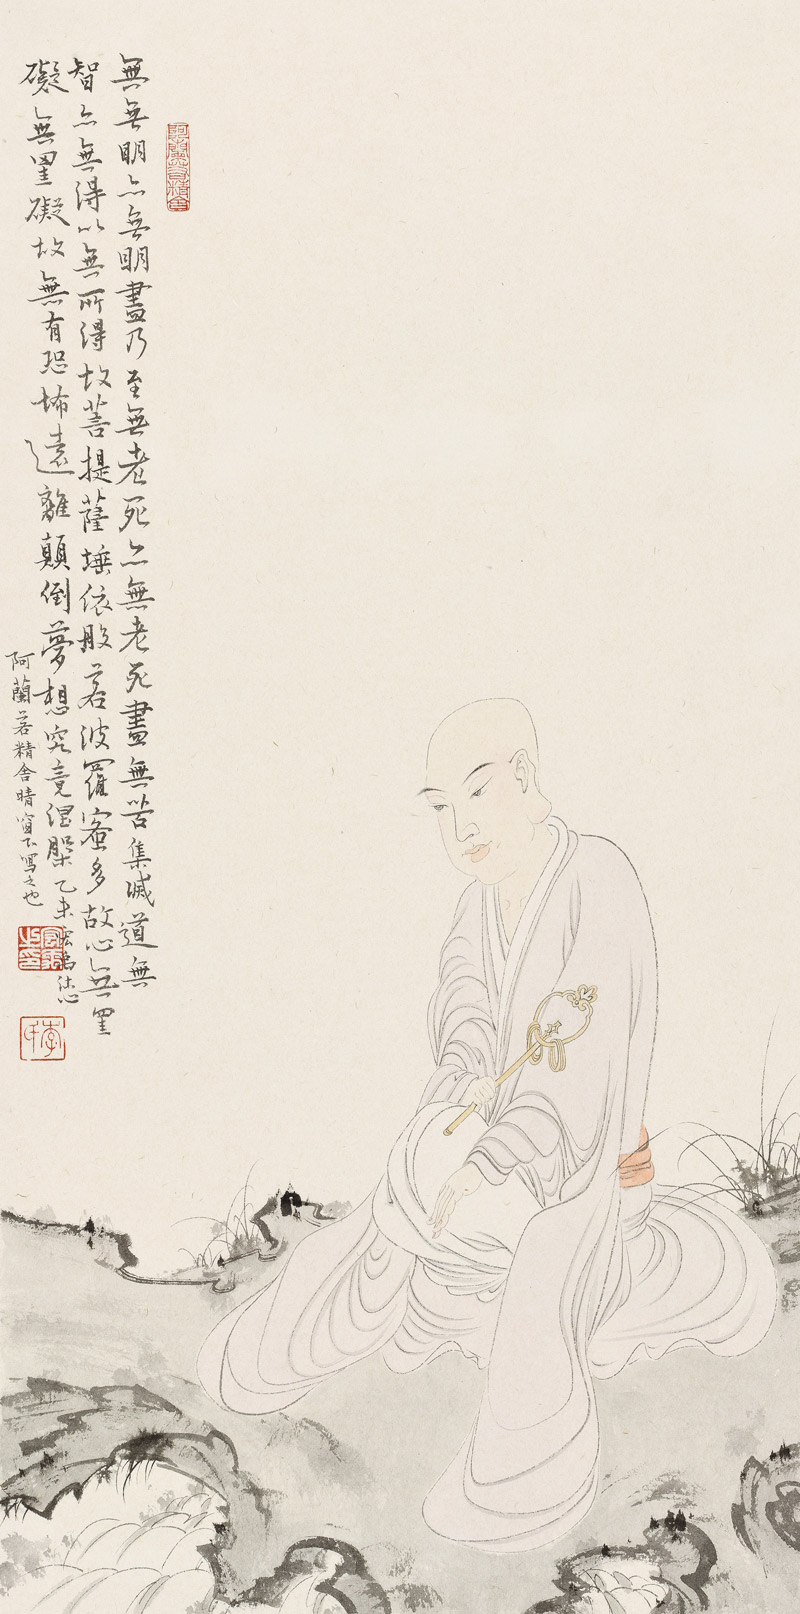 阿蘭若精舍
無無明亦無明盡乃至無老死亦無老死盡無苦集滅道無
智亦無得以無所得故菩提薩埵依般若波羅蜜多故心無罣
礙無罣礙故無有恐怖遠離顛倒夢想究竟涅槃乙未
阿蘭若精舍晴窗下寫之也